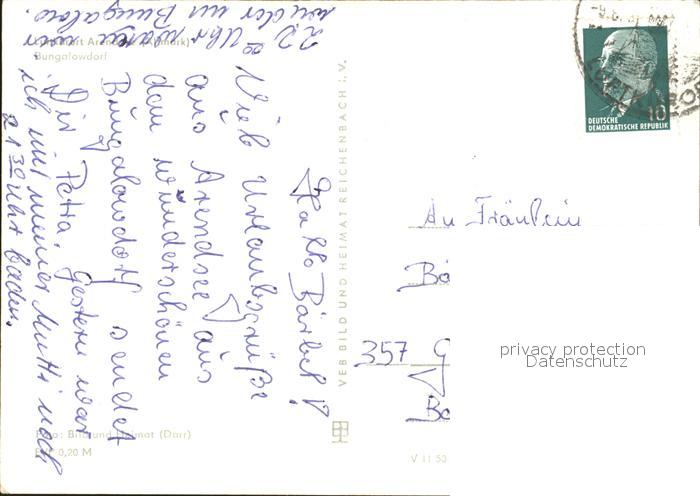 Luftkurort Arendsee (Altmark)
Bungalowdorf
Hallo Bärbel!
Viele Urlaubsgrüße
aus Arendsee, aus
dem wunderschönen
Bungalowdorf sendet
Dir Petra. Gestern war
ich mit meiner Mutti noch
21³⁰ Uhr baden.
22⁰⁰ Uhr waren wir
wieder im Bungalow.
VEB BILD UND HEIMAT REICHENBACH i. V.
Foto: Bild und Heimat (Darr)
EVP 0,20 M
V 11 50
DEUTSCHE
DEMOKRATISCHE REPUBLIK
10
An Fräulein
Bä
357 G
Be
privacy protection
Datenschutz